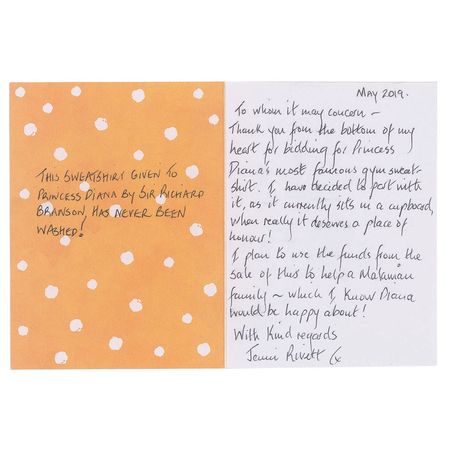 THIS SWEATSHIRT GIVEN TO
PRINCESS DIANA BY SIR RICHARD
BRANSON, HAS NEVER BEEN
WASHED!
MAY 2019.
To whom it may concern ~
Thank you from the bottom of my
heart for bidding for Princess
Diana's most famous gym sweat-
shirt. I have decided to part with
it, as it currently sits in a cupboard,
when really it deserves a place of
honour!
I plan to use the funds from the
sale of this to help a Malawian
family ~ which I know Diana
would be happy about!
With kind regards
Jenni Rivett x